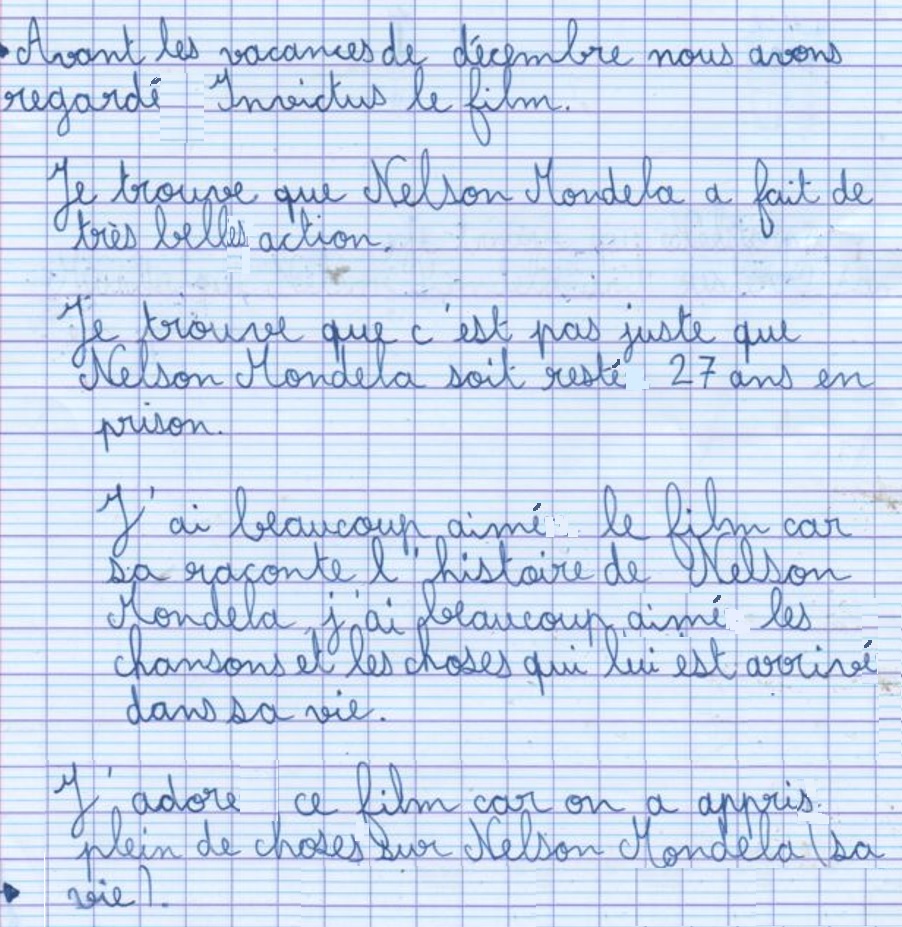 Avant les vacances de décembre nous avons
regardé Invictus le film.
Je trouve que Nelson Mondela a fait de
très belles action.
Je trouve que c'est pas juste que
Nelson Mondela soit resté 27 ans en
prison.
J'ai beaucoup aimé le film car
sa raconte l'histoire de Nelson
Mondela, j'ai beaucoup aimé les
chansons et les choses qui lui est arrivé
dans sa vie.
J'adore ce film car on a appris
plein de choses sur Nelson Mondela (sa
vie).